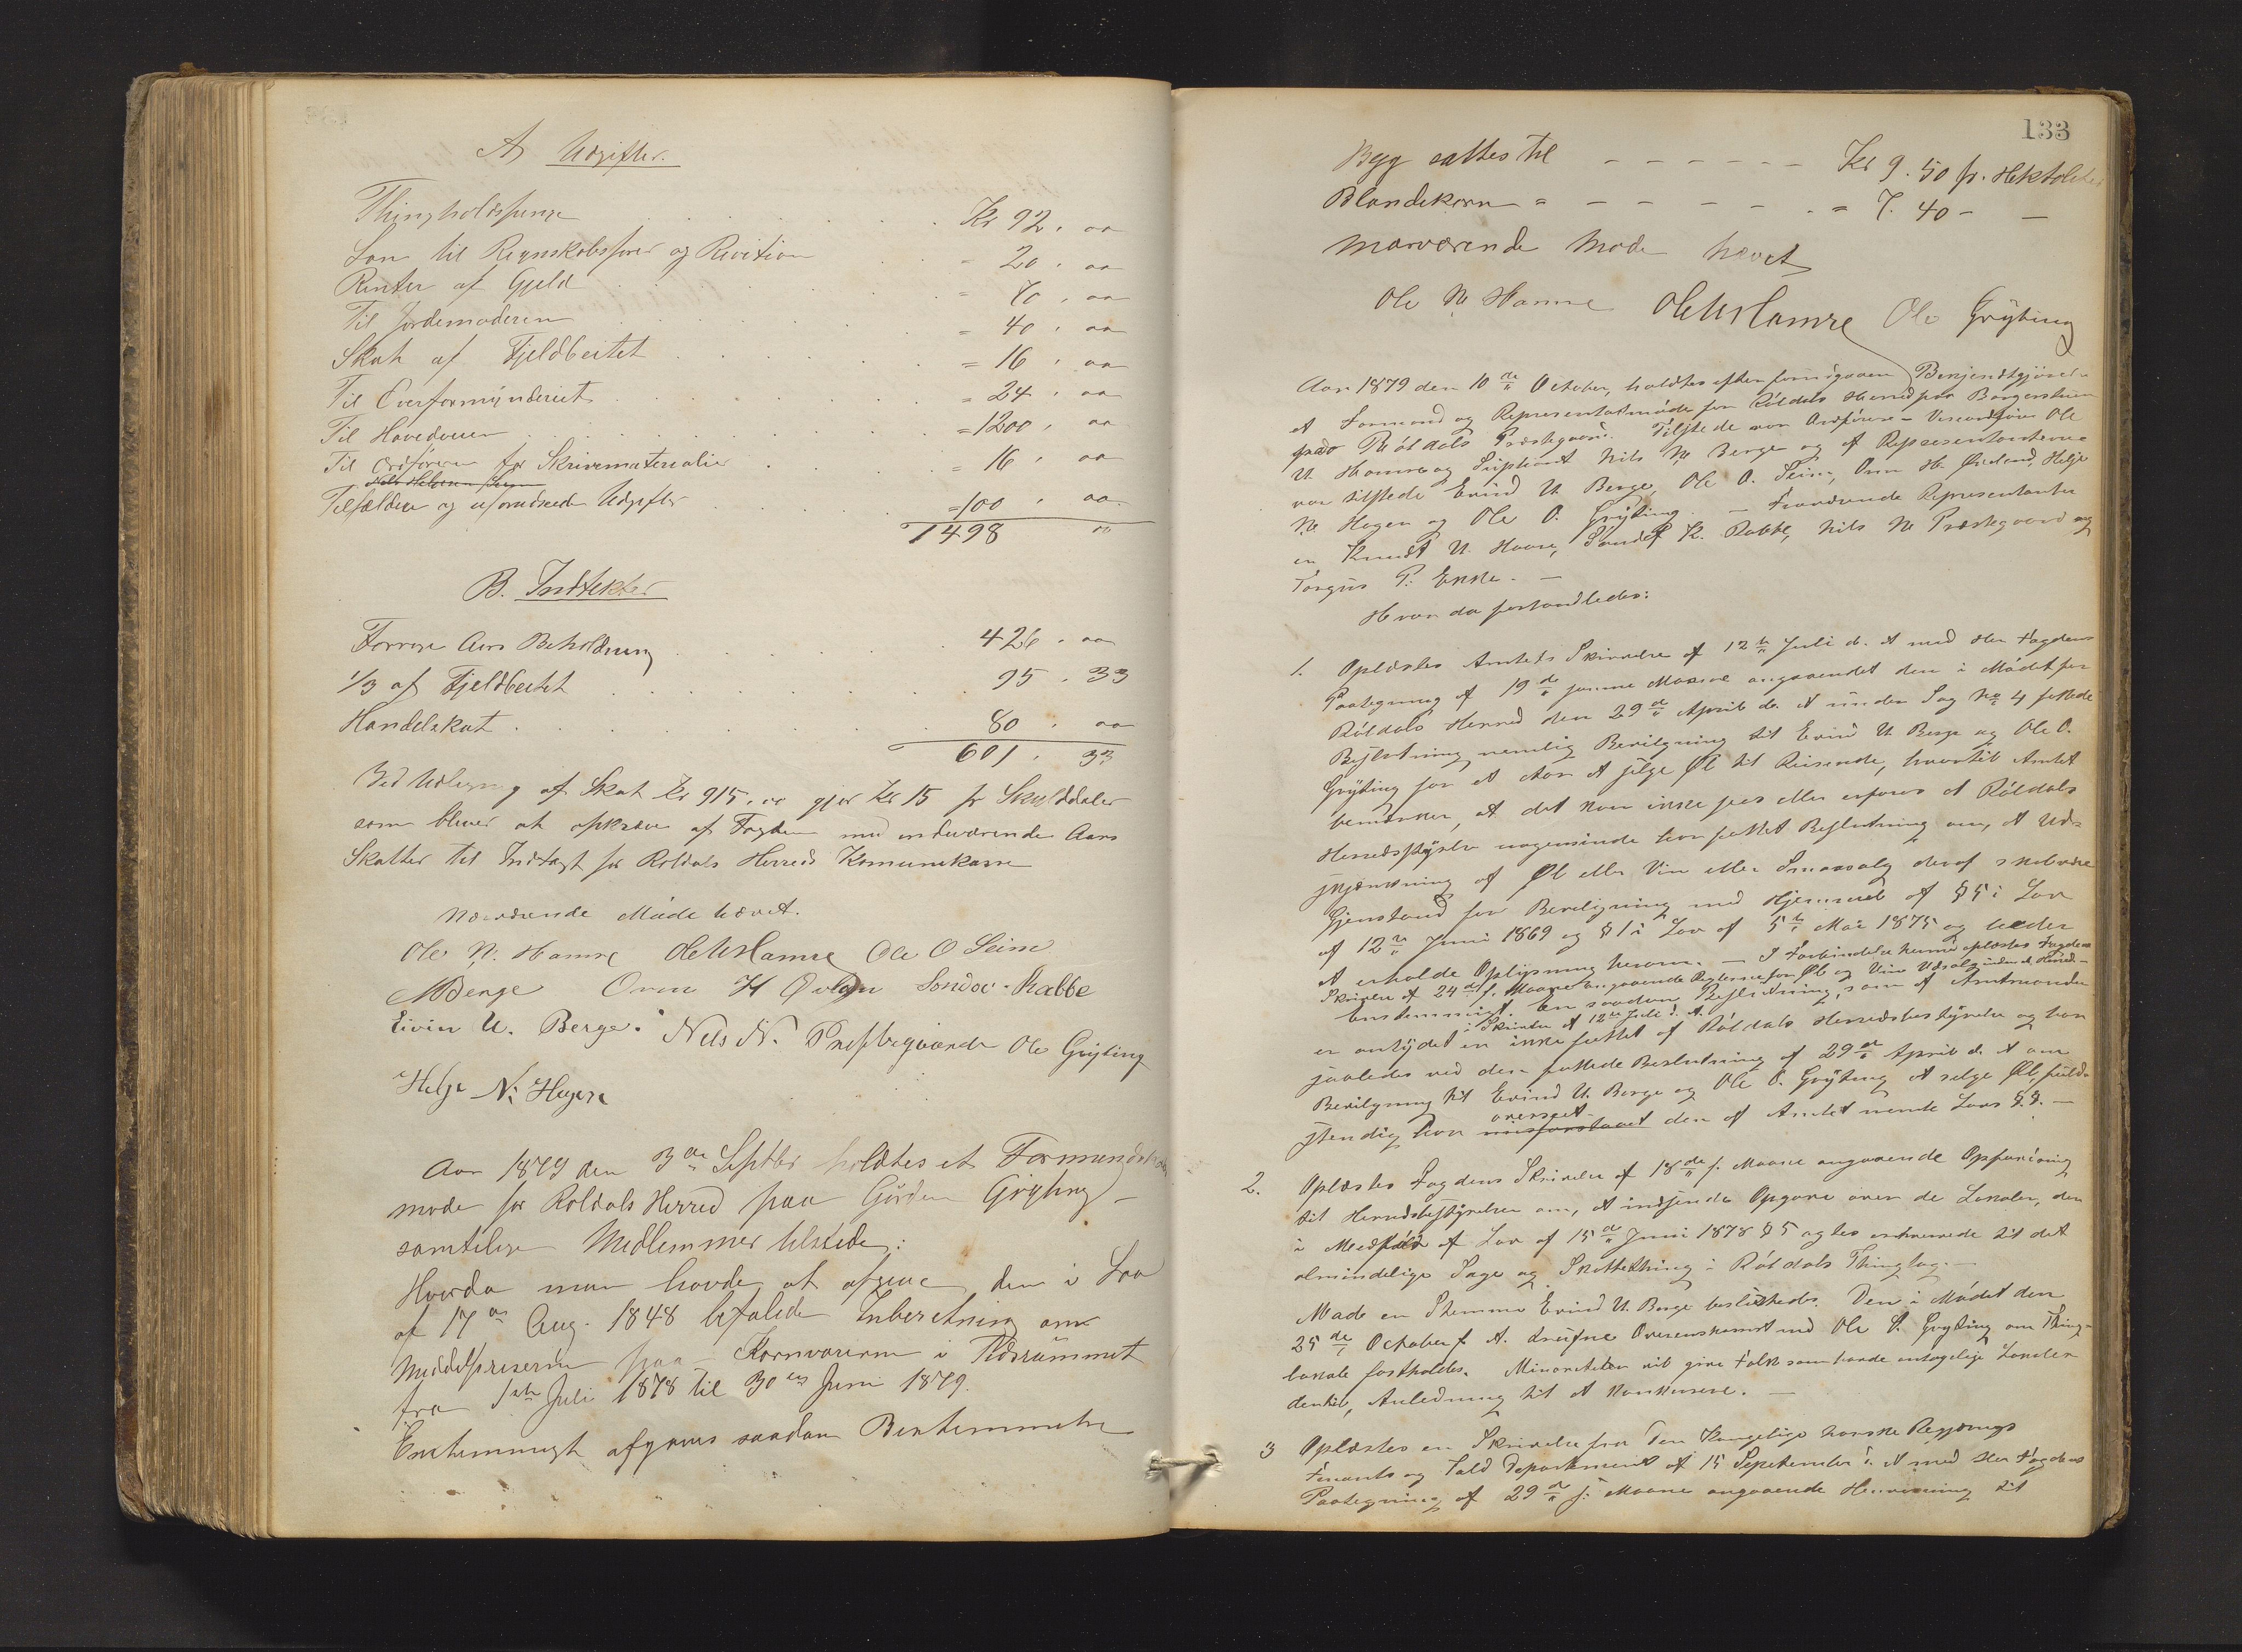 A Udgifter.
Thingholdspenge . . . . . Kr 92 . oo
Løn til Regnskabsfører og Revision . . = 20 . oo
Renter af Gjeld . . . . . =  . oo
Til Jordemoderen . . . . . = 40 . oo
Skat af Fjeldbeitet . . . . . = 16 . oo
Til Overformynderiet . . . . . = 24 . oo
Til Hoveveien . . . . . = 1200 . oo
Til Ordføreren for Skrivematerialier . . = 16 . oo
Tilfældige og uforudseede Udgifter . . . = 100 . oo
1498 oo
B. Indtekter
Forrige Aars Beholdning . . . . 426 . oo
1/3 af Fjeldbeitet . . . . . 95 . 33
Handelskat . . . . . 80 . oo
601 . 33
Ved Udligning af Skat Kr 915. oo gjør Kr 15 pr Skylddaler
som bliver at opkræve af Fogden med indeværende Aars
Skatter til Indtægt for Roldals Herreds Komunekasse
Nærværende Møde hævet.
Ole N. Hamre Ole U Hamre Ole O Seim
N Berge Orm H Sondov Rabbe
Eivin U. Berge. Nels N. Prestegaarde Ole Gryting
Helje N. Hagen
Aar 1879 den 3de Septbr holdtes et Formandskabs
møde for Roldals Herred paa Gården Gryting –
samtlige Medlemmer tilstede:
Hvorda man havde at afgive den i Lov
af 17de Aug. 1848 befalede Inberetning om
Middelpriserne paa Kornvarerne i Tidsrummet
fra 1ste Juli 1878 til 30te Juni 1879.
Enstemmigt afgaves saadan Bestemmelse
133
Byg sattes til – – – – – – Kr 9. 50 pr. Hektoliter
Blandekorn = – – – – – . = 7. 40 – –
Nærværende Møde hævet
Ole N. Hamre Ole U Hamre Ole Gryting
Aar 1879 den 10de October, holdtes efter forudgaaen Bekjendtgjørelse
et Formand og Representatmøde for Røldals Herred paa Borgerstuen
paa Røldals Præstegaard. Tilstede var Ordføreren Viceordfører Ole
U. Hamre og Supliant Nils N. Berge og af Representanterne
var tilstede Eivind U. Berge, Ole O. Seim, Orm H. Helje
N. Hagen og Ole O. Gryting. – Fraværende Representanter
er Knudt U. Haare, Sondof K. Rabbe, Nils N. Præstegaard og
Torgus P.
Hvor da forhandledes:
1. Oplæstes Amtets Skrivelse af 12te Juli d. A med Her Fogdens
Paategning af 19de samme Maane angaaendet den i Mødet for
Røldals Herred den 29de April d. A under Sag No 4 fattede
Beslutning nemlig Bevilgning til Eivind U. Berge og Ole O.
Gryting for et Aar at sælge Øl til Reisende, hvortil Amtet
bemærker, at det kan ikke sees eller erfares at Røldals
Herredsstyrelse nogensinde har fattet Beslutning om, at Ud-
skjænkning af Øl eller Vin eller Smaasalg deraf skal være
Gjenstand for Bevilgning med Hjemmel af § 5 i Lov
af 12te Juni 1869 og § 1 i Lov af 5te Mai 1875 og beder
at erholde Oplysning herom. – I Forbindelse hermed oplæstes Fogdens
Skrivelse af 24de f. Maane angaaende for Øl og Vin Udsalg inden d. Herred –
Enstemmigt. En saadan Beslutning, som af Amtmanden
i Skrivelse af 12te Juli d. A.
er antydet er ikke fattet af Røldals Herredsbestyrelse og har
saaledes ved den fattede Beslutning af 29de April d. A om
Bevilgning til Eivind U. Berge og Ole O. Gryting at selge Øl, fuld-
overseet
stendig har misforstaaet den af Amtet nevnte Lovs §.§. –
2. Oplæstes Fogdens Skrivelse af 18de f. Maane angaaende Opfordring
til Herredsbestyrelsen om, at indsende Opgave over de Lokaler, der
i Medfør af Lov af 15de Juni 1878 § 5 agtes anvendte til det
almindelige Sage og Skattething i Røldals Thinglag. –
Mod en Stemme Eivind U. Berge besluttedes. Den i Mødet den
25de October f. A. trufne Overenskomst med Ole O. Gryting om Thing-
lokale fastholdes. Minoriteten vil give Folk som havde antagelige Lokaler
dertil, Anledning til at konkurere. –
3 Oplæstes en Skrivelse fra Den Kongelige norske Regjerings
Finants og Told Departement af 15 September d. A med Her Fogdens
Paategning af 29de f. Maane angaaende Henvisning til